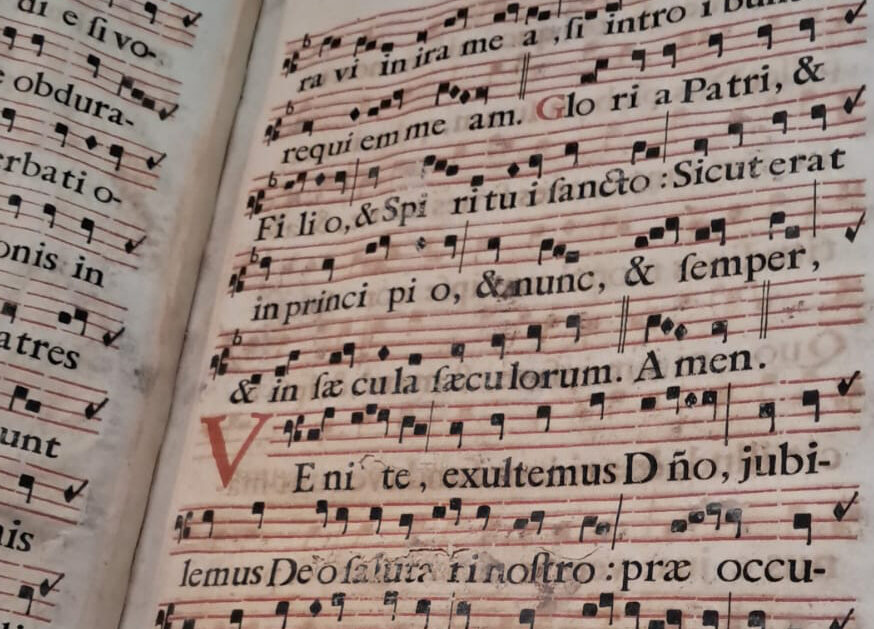 di e ſi vo-
obdura-
rbati o-
onis in
atres
unt
is
ra vi in ira me a, ſi intro i bunt
requi em me am. Glo ri a Patri, &
Fi li o, & Spi ri tu i ſancto : Sicut erat
in princi pi o, & nunc, & ſemper,
& in ſæ cu la ſæcu lorum. A men.
VE ni te, exultemus D ño, jubi-
lemus De o ſaluta ri noſtro : præ occu-